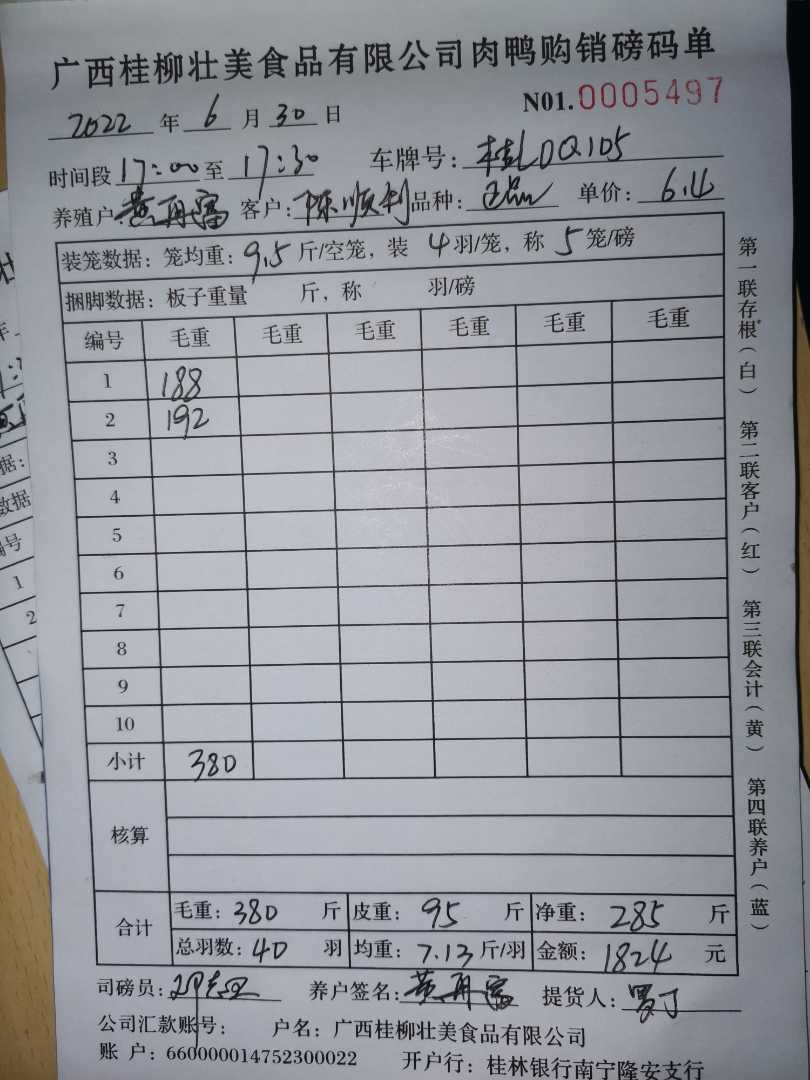 广西桂柳壮美食品有限公司肉鸭购销磅码单
2022年6月30日 N01.0005497
时间段17:00至17:30 车牌号:桂LDQ105
养殖户:黄再富 客户:陈顺利 品种: 单价:6.4
装笼数据:笼均重:9.5斤/空笼,装4羽/笼,称5笼/磅
捆脚数据:板子重量 斤,称 羽/磅
编号 毛重 毛重 毛重 毛重 毛重 毛重
1 188
2 192
3
4
5
6
7
8
9
10
小计 380
核算
合计 毛重:380斤 皮重:95斤 净重:285斤
总羽数:40羽 均重:7.13斤/羽 金额:1824元
司磅员: 养户签名:黄再富 提货人:罗丁
公司汇款账号: 户名:广西桂柳壮美食品有限公司
账 户:660000014752300022 开户行:桂林银行南宁隆安支行
第一联存根(白) 第二联客户(红) 第三联会计(黄) 第四联养户(蓝)
据:
数据
编号
1
2